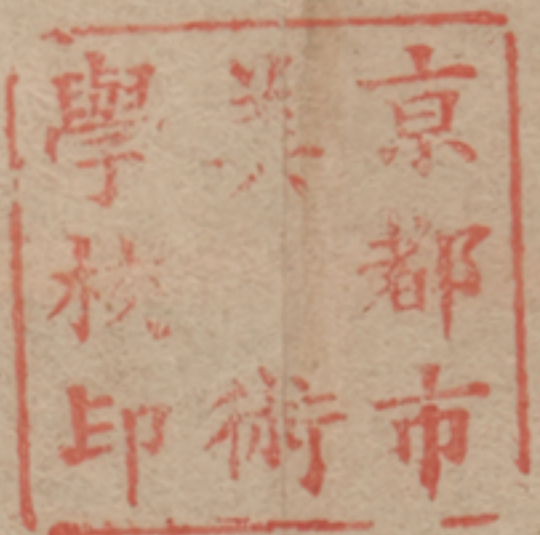 京都市
美術
學校印